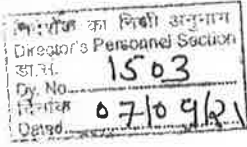 का निजी अनुभाग
Director's Personnel Section
डा.सं.
Dy. No. 1503
दिनांक
Dated 07/09/21